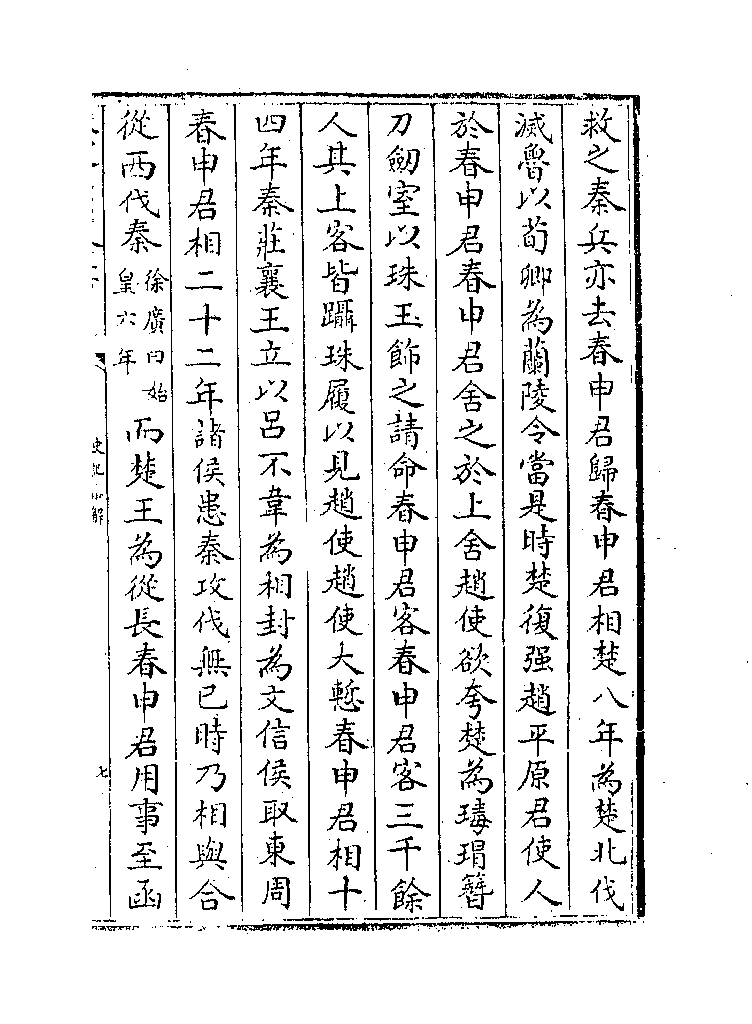 救之秦兵亦去春申君歸春申君相楚八年為楚北伐
滅魯以荀卿為蘭陵令當是時楚復强趙平原君使人
於春申君春申君舍之於上舍趙使欲夸楚為瑇瑁簪
刀劒室以珠玉飾之請命春申君客春申君客三千餘
人其上客皆躡珠履以見趙使趙使大慙春申君相十
四年秦莊襄王立以呂不韋為相封為文信侯取東周
春申君相二十二年諸侯患秦攻伐無已時乃相與合
從西伐秦徐廣曰始皇六年而楚王為從長春申君用事至函
七